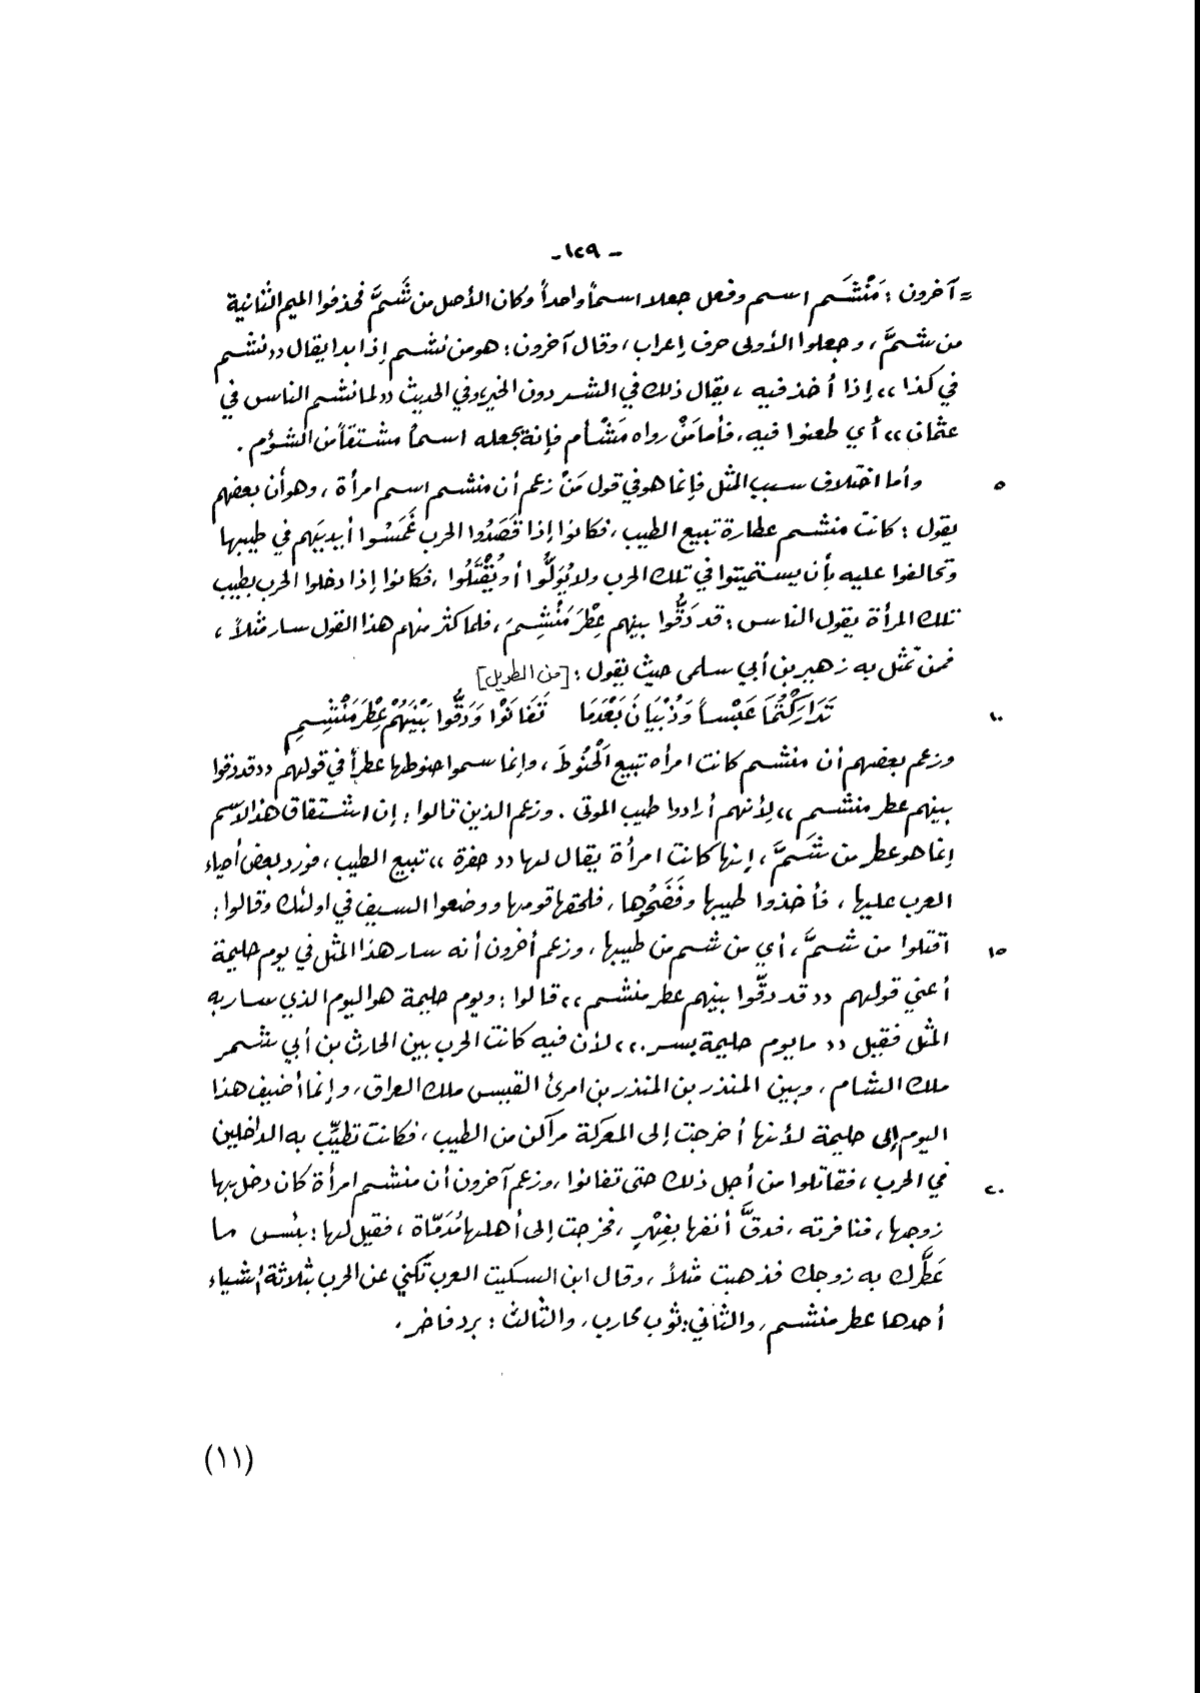 - ١٢٩ -
= آخرون : مَنْشَم اسم وفعل جعلا اسماً واحداً وكان الأصل من شَمَّ فحذفوا الميم الثانية
من شمَّ ، وجعلوا الأولى حرف إعراب ، وقال آخرون : هو من نشم إذا بدا يقال ,, نشم
في كذا ،، إذا أخذ فيه ، يقال ذلك في الشر دون الخير، وفي الحديث ,, لما نشم الناس في
عثمان ،، أي طعنوا فيه ، فأما مَنْ رواه مَشْأم فإنة يجعله اسماً مشتقاً من الشؤم .
٥ وأما اختلاف سبب المثل فإنما هو في قول مَنْ زعم أن منشم اسم امرأة ، وهو أن بعضهم
يقول : كانت منشم عطارة تبيع الطيب ، فكانوا إذا قَصَدُوا الحرب غَمَسُوا أيديَهم في طيبها
وتحالفوا عليه بأن يستميتوا في تلك الحرب ولا يُوَلُّوا أو يُقْتَلُوا ، فكانوا إذا دخلوا الحرب بطيب
تلك المرأة يقول الناس : قد دَقُّوا بينهم عِطْرَ مَنْشِمَ ، فلما كثر منهم هذا القول سار مثلاً ،
فمن تمثل به زهير بن أبي سلمى حيث يقول : [من الطويل]
١٠ تَدَارَكْتُمَا عَبْساً وَذُبْيَانَ بَعْدَمَا تَفَانَوْا وَدَقُّوا بَيْنَهُمْ عِطْرَ مَنْشِمِ
وزعم بعضهم أن منشم كانت امرأه تبيع اَلْحَنُوطَ ، وإنما سموا حنوطها عطراً في قولهم ,, قد دقوا
بينهم عطر منشم ،، لِأنهم أرادوا طيب الموتى . وزعم الذين قالوا : إن اشتقاق هذا الاسم
إنما هو عطر من شَمَّ ، إنها كانت امرأة يقال لها ,, خفرة ،، تبيع الطيب ، فورد بعض أحياء
العرب عليها ، فأخذوا طيبها وفَضَحُوها ، فلحقها قومها ووضعوا السيف في اولئك وقالوا :
١٥ آقتلوا من شمَّ ، أي من شم من طيبها ، وزعم أخرون أنه سار هذا المثل في يوم حليمة
أعني قولهم ,, قد دقّوا بينهم عطر منشم ،، قالوا : ويوم حليمة هو اليوم الذي سار به
المثل فقيل ,, ما يوم حليمة بسر. ،، لأن فيه كانت الحرب بين الحارث بن أبي شمر
ملك الشام ، وبين المنذر بن المنذر بن امرئ القيس ملك العراق ، وإنما أضيف هذا
اليوم إلى حليمة لأنها أخرجت إلى المعركة مرآكن من الطيب ، فكانت تطيِّب به الداخلين
٢٠ في الحرب ، فقاتلوا من أجل ذلك حتى تفانوا ، وزعم آخرون أن منشم امرأة كان دخل بها
زوجها ، فنافرته ، فدقَّ أنفها بفِهْرٍ ، فخرجت إلى أهلها مُدَمّاة ، فقيل لها : بئس ما
عَطَّرك به زوجك فذهبت مثلاً ، وقال ابن السكيت العرب تكني عن الحرب بثلاثة أشياء
أحدها عطر منشم ، والثاني : ثوب محارب ، والثالث : برد فاخر .
(١١)